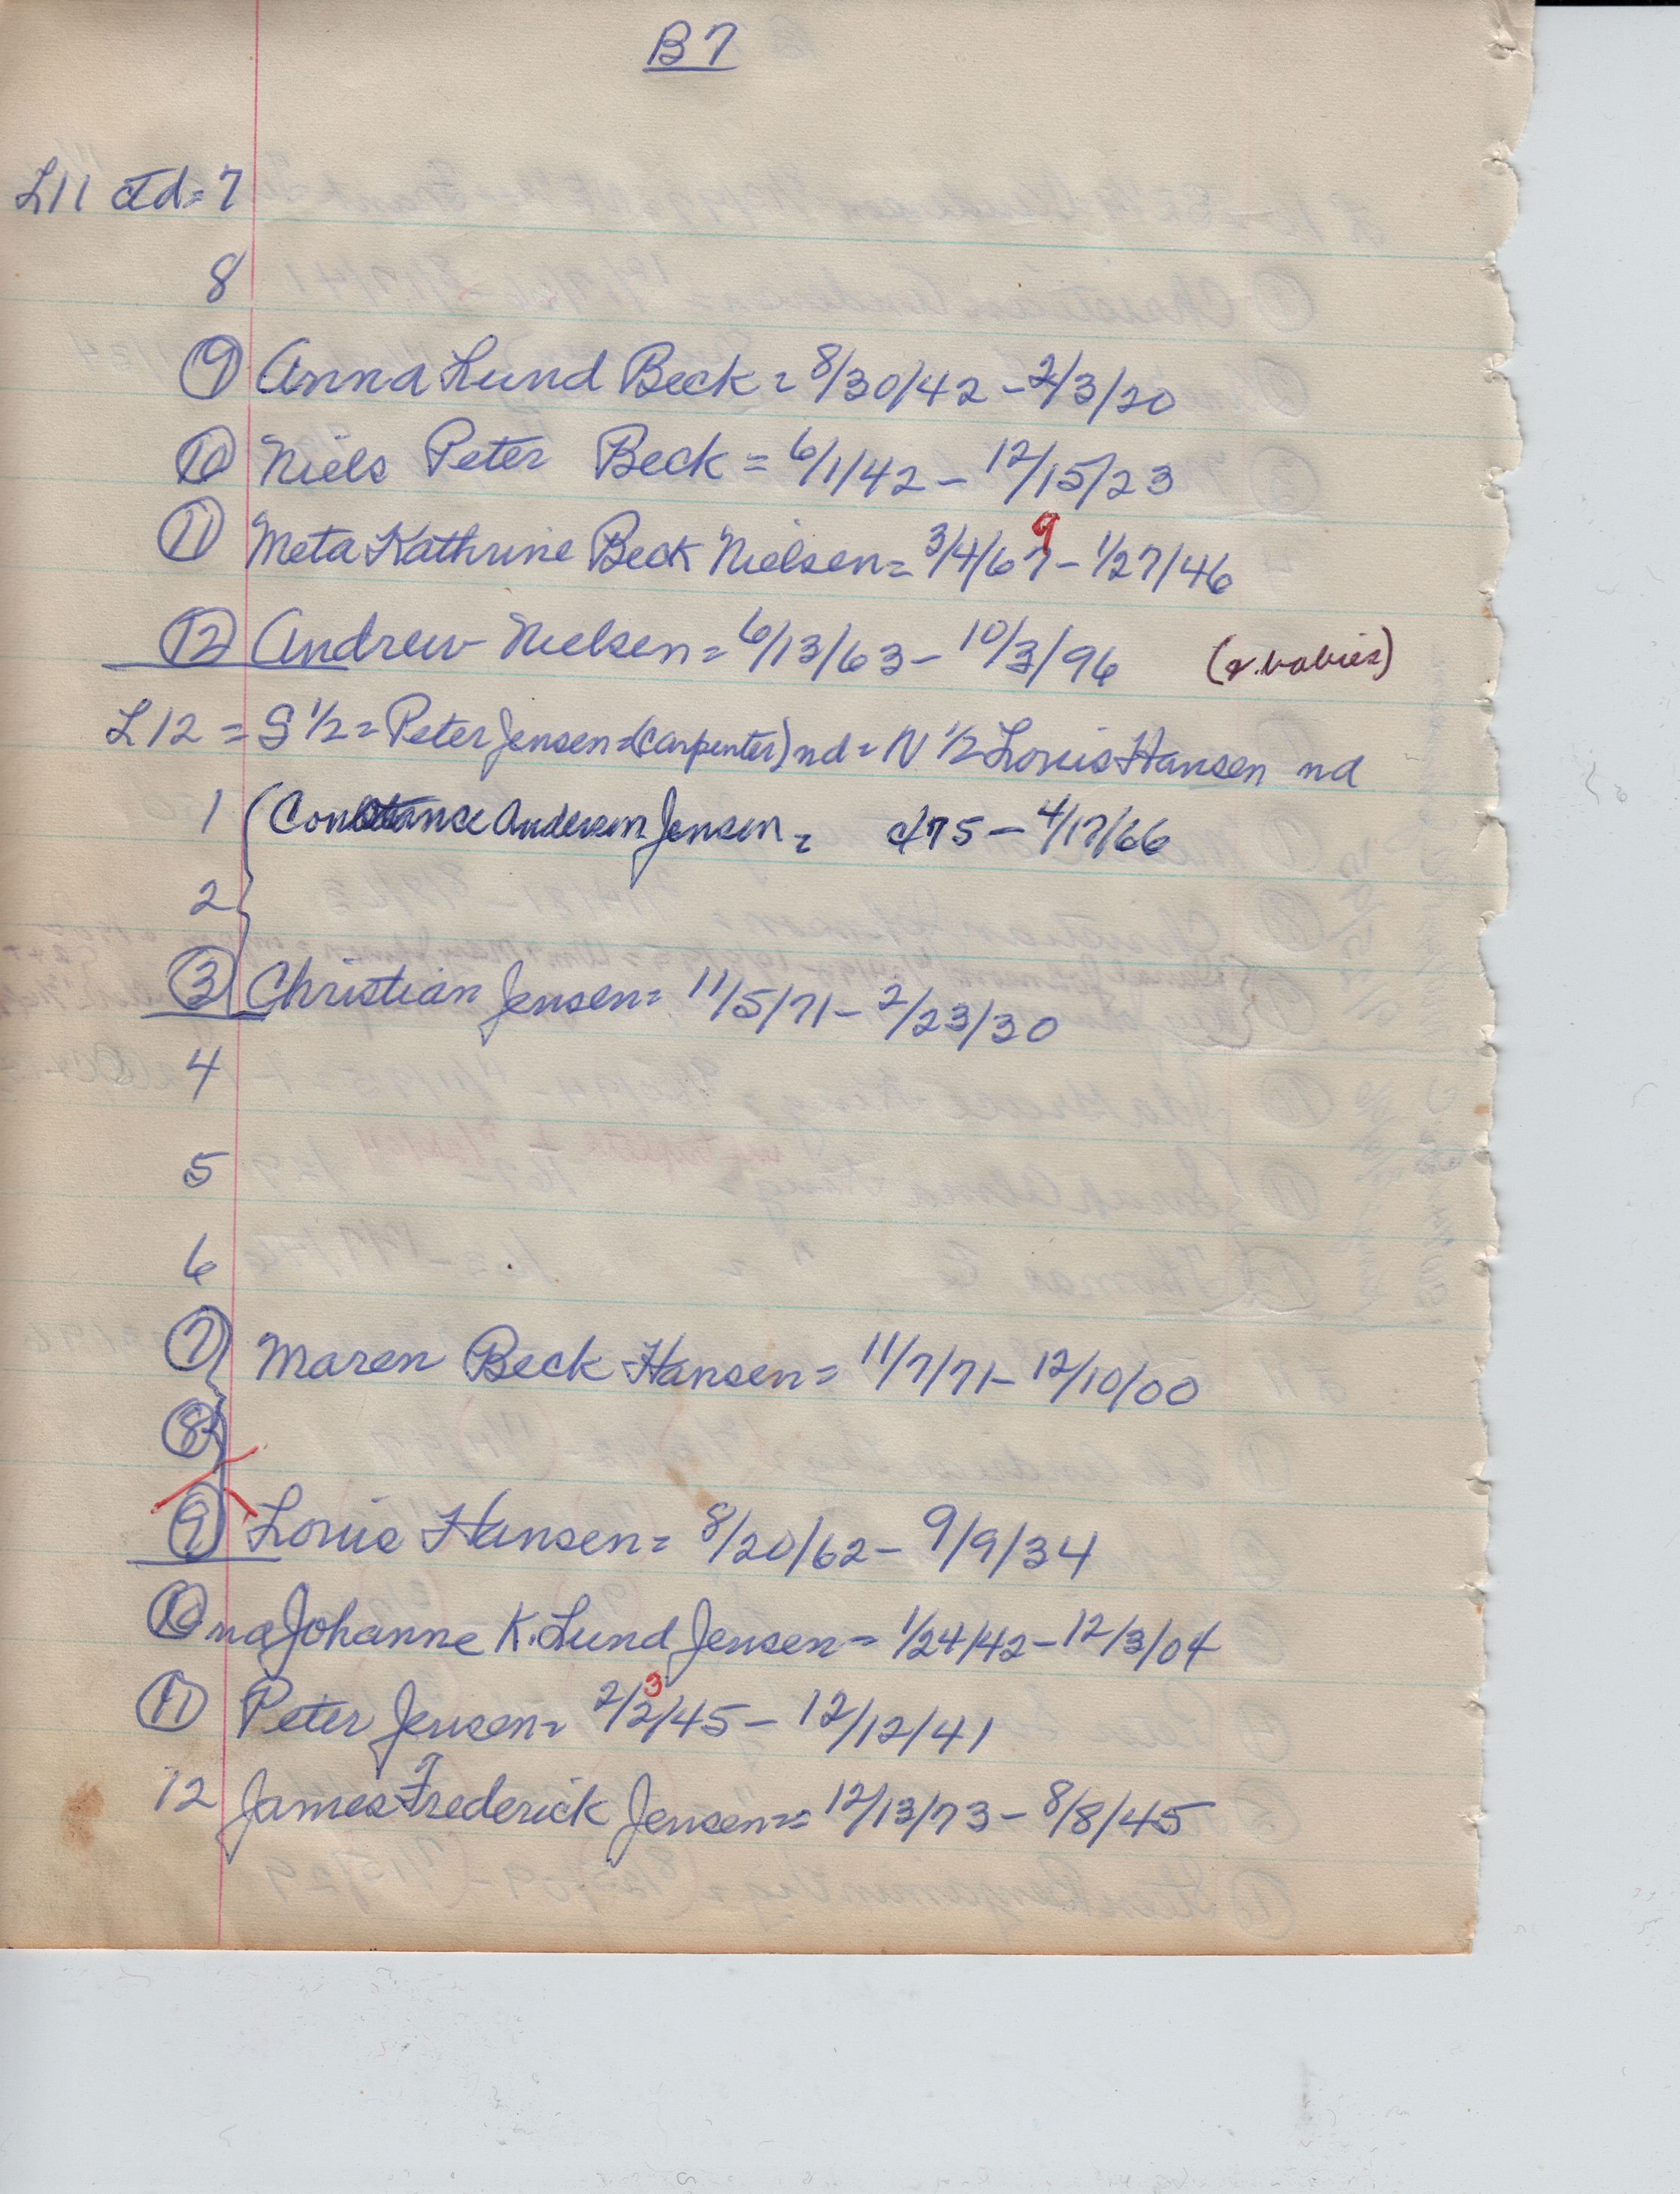 B7
L11 ctd = 7
8
9 Anna Lund Beck = 8/30/42 - 2/3/20
10 Niels Peter Beck = 6/1/42 - 12/15/23
11 Meta Kathrine Beck Nielsen = 3/4/67 9 - 1/27/46
12 Andrew Nielsen = 6/13/63 - 10/3/96 (& babies)
L12 = S 1/2 = Peter Jensen = (carpenter) nd = N 1/2 Louis Hansen nd
1 (Constance Andersen Jensen = 75 - 4/17/66
2
3 Christian Jensen = 11/5/71 - 2/23/30
4
5
6
7 Maren Beck Hansen = 11/7/71 - 12/10/00
8
9 Louis Hansen = 8/20/62 - 9/9/34
10 Johanne K. Lund Jensen = 1/24/42 - 12/3/04
11 Peter Jensen = 2/2 3/45 - 12/12/41
12 James Frederick Jensen = 12/13/73 - 8/8/45